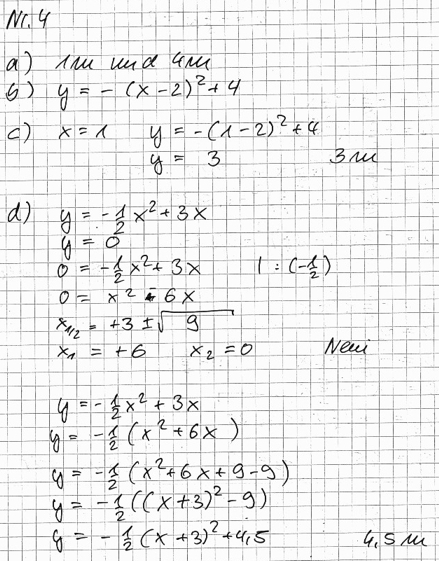 Nr. 4
a) 1m und 4m
b) y = -(x-2)²+4
c) x = 1 y = -(1-2)²+4
y = 3 3m
d) y = -½x²+3x
y = 0
0 = -½x²+3x | : (-½)
0 = x² - 6x
x₁/₂ = +3 ± √9
x₁ = +6 x₂ = 0 Nein
y = -½x² + 3x
y = -½(x²+6x)
y = -½(x²+6x+9-9)
y = -½((x+3)²-9)
y = -½(x+3)²+4,5 4,5m